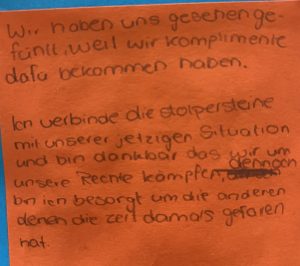 Wir haben uns gesehen ge-
fühlt, weil wir komplimente
dafü bekommen haben.
Ich verbinde die stolpersteine
mit unserer jetzigen Situation
und bin dankbar das wir um
unsere Rechte kämpfen, dennoch
bn ich besorgt um die anderen
denen die zeit damals gefaren
hat.